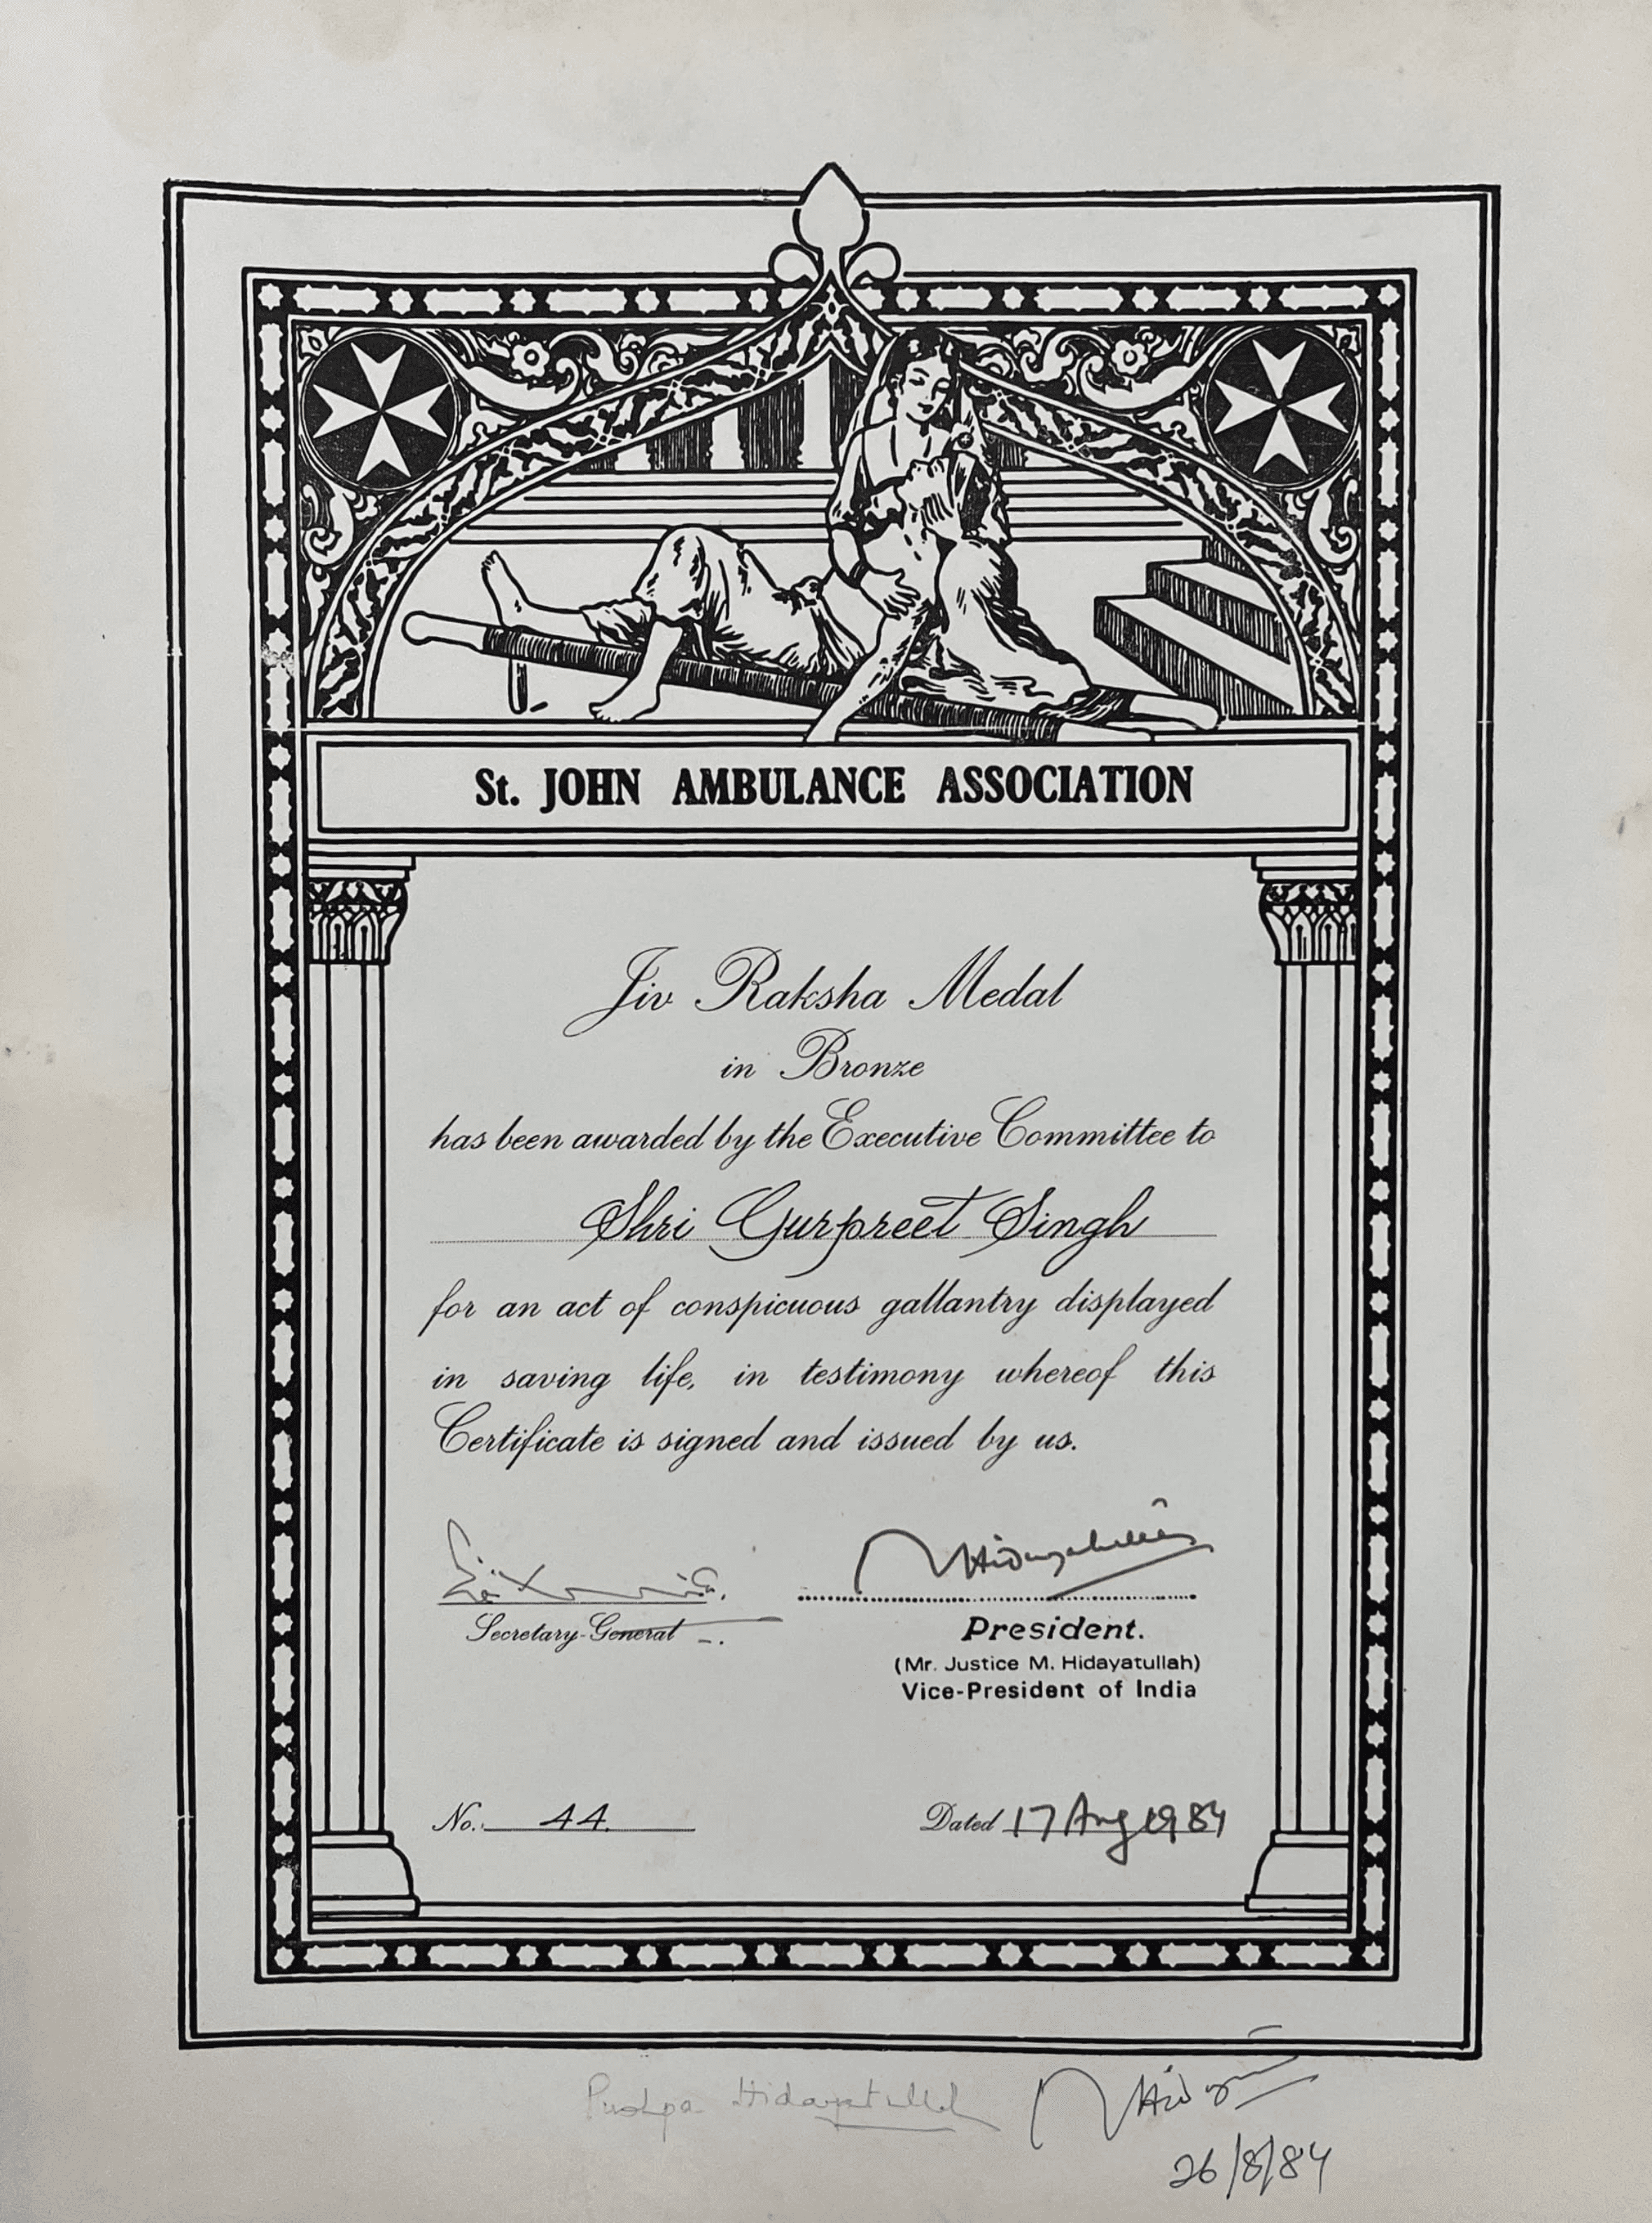 St. JOHN AMBULANCE ASSOCIATION
Jiv Raksha Medal
in Bronze
has been awarded by the Executive Committee to
Shri Gurpreet Singh
for an act of conspicuous gallantry displayed
in saving life, in testimony whereof this
Certificate is signed and issued by us.
MHidayatullah
Secretary-General
President.
(Mr. Justice M. Hidayatullah)
Vice-President of India
No. 44.
Dated 17 Aug 1984
Pushpa Hidayatullah
26/8/84